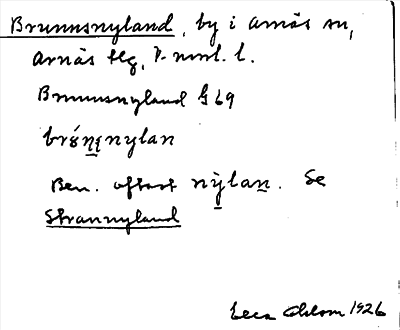 Brunnsnyland, by i Arnäs sn,
Arnäs tlg, V-norrl. l.
Brunnsnyland G 69
nylan
Ben. oftast nylan. Se
Strannyland
1926